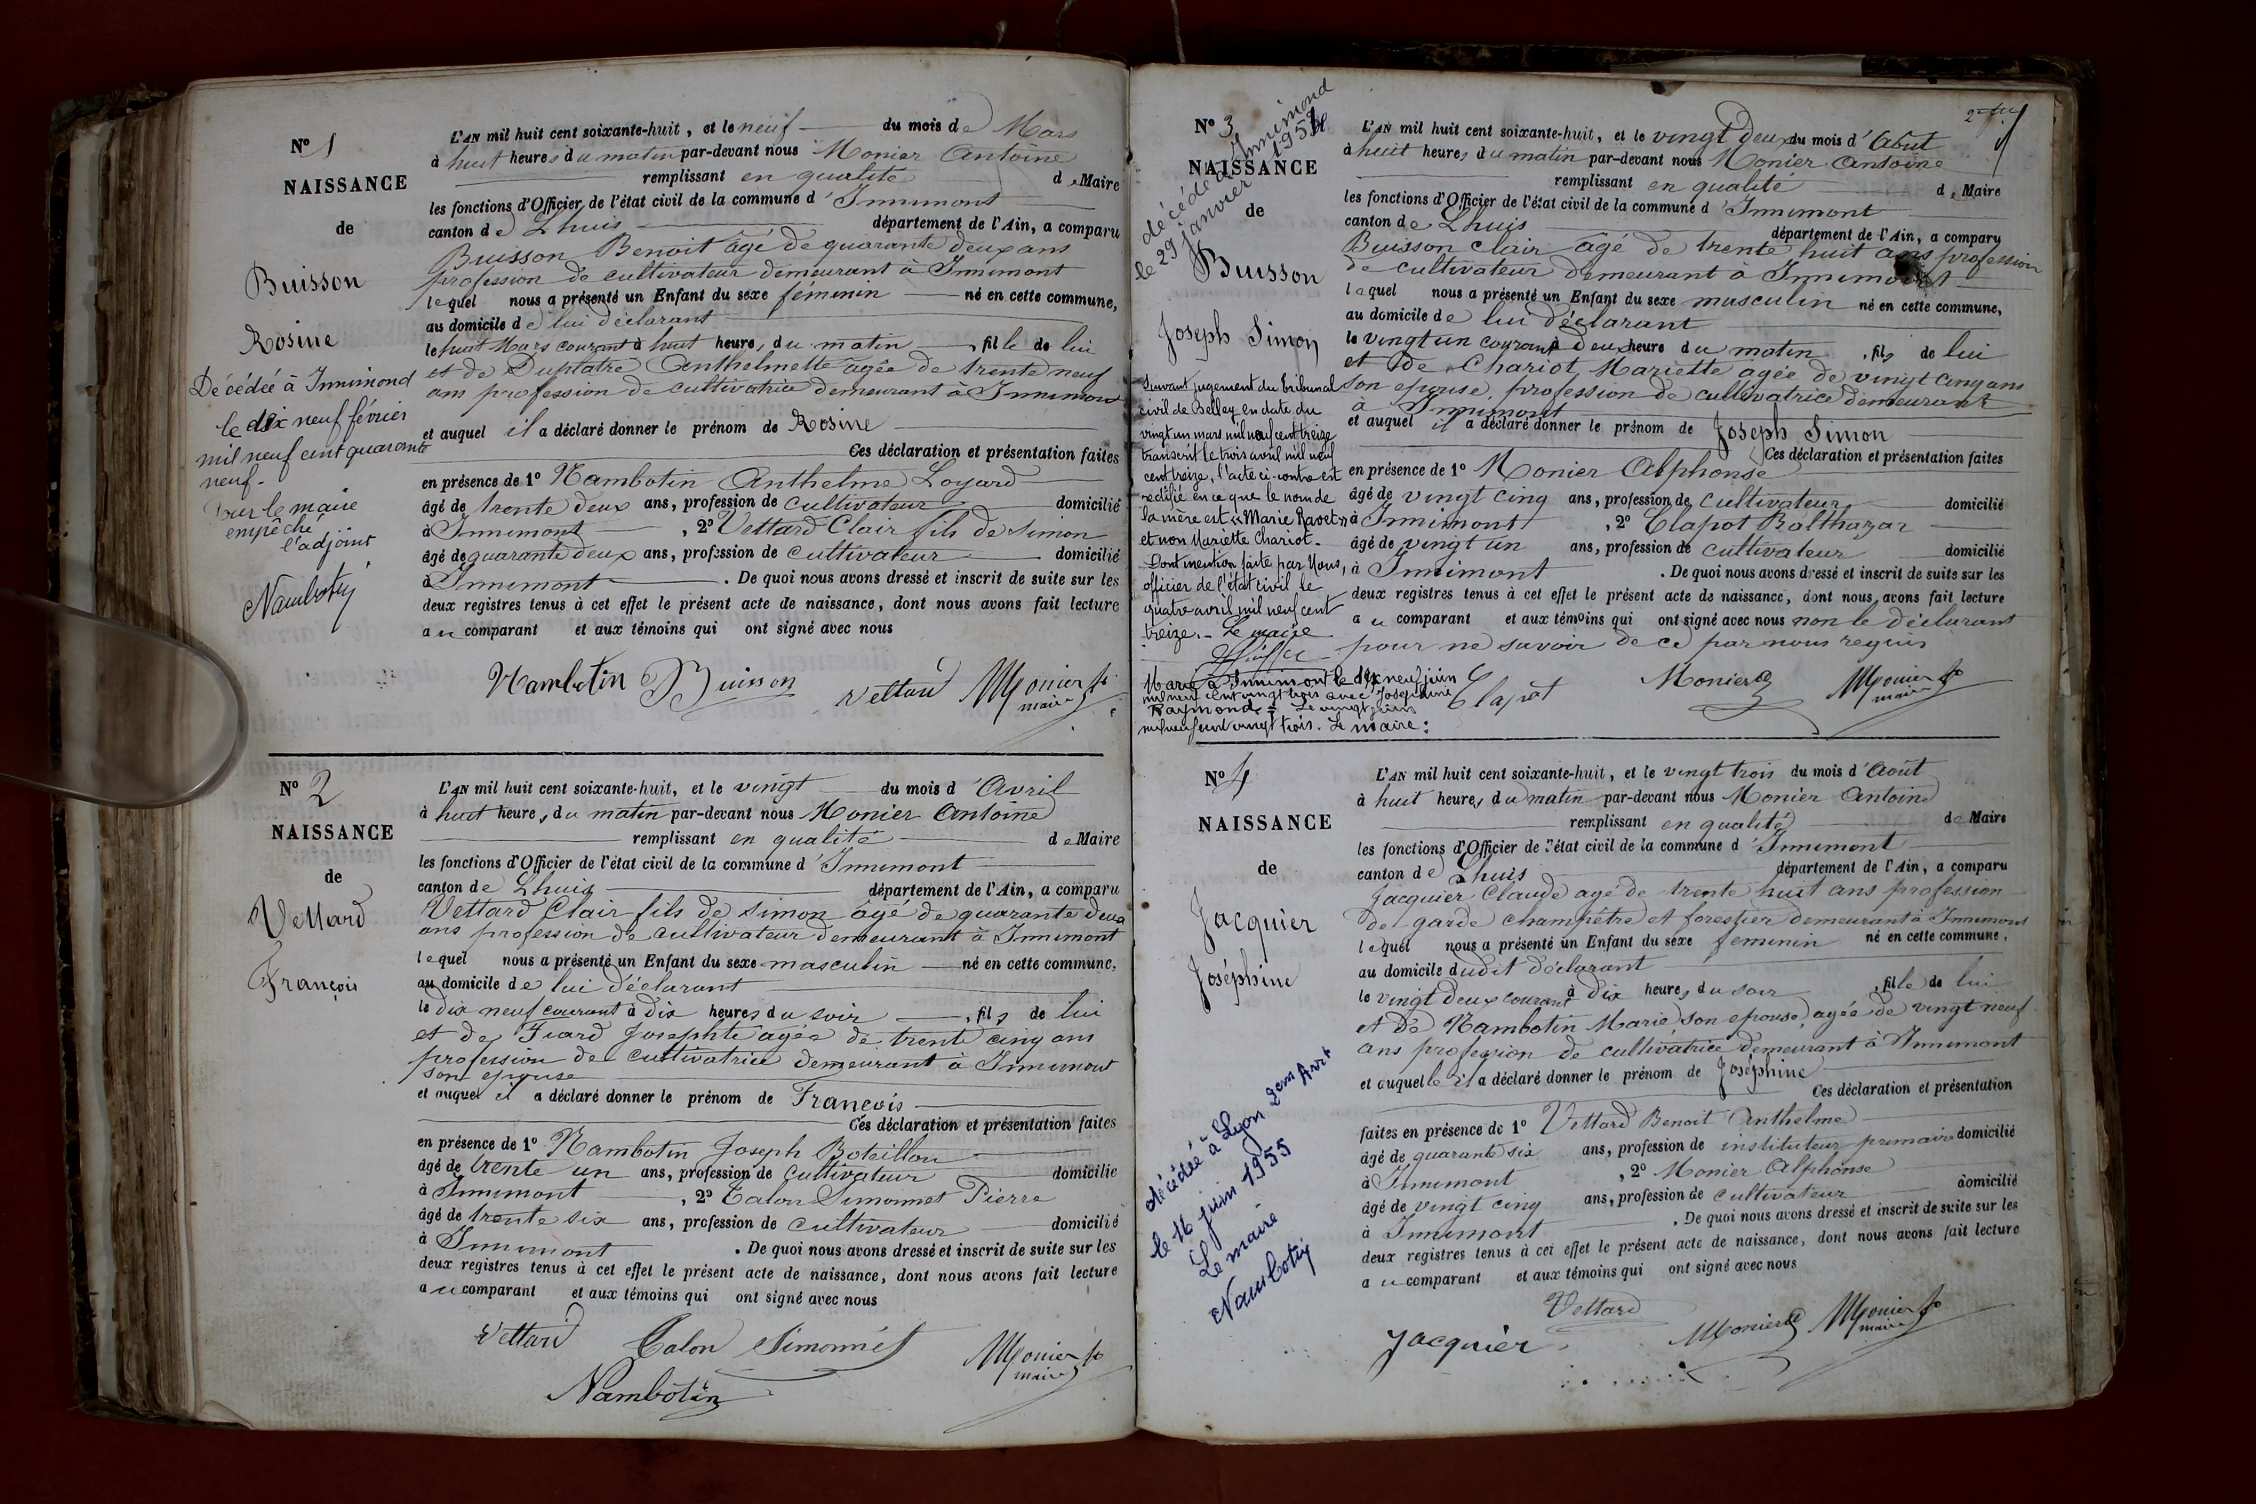 N° 1
NAISSANCE
de
Buisson
Rosine
Décédée à Innimond
le dix neuf février
mil neuf cent quarante
neuf.
Pour le maire
empêché
l'adjoint
Nambotin
L'AN mil huit cent soixante-huit, et le neuf du mois de Mars
à huit heures du matin par-devant nous Monier Antoine
remplissant en qualité de Maire
les fonctions d'Officier de l'état civil de la commune d'Innimont
canton de Lhuis département de l'Ain, a comparu
Buisson Benoit âgé de quarante deux ans
profession de cultivateur demeurant à Innimont
lequel nous a présenté un Enfant du sexe féminin né en cette commune,
au domicile de lui déclarant
le huit Mars courant à huit heures du matin, fille de lui
et de Duplatre Anthelmette âgée de trente neuf
ans profession de cultivatrice demeurant à Innimont
et auquel il a déclaré donner le prénom de Rosine
Ces déclaration et présentation faites
en présence de 1° Nambotin Anthelme Loyard
âgé de trente deux ans, profession de cultivateur domicilié
à Innimont, 2° Vettard Clair fils de Simon
âgé de quarante deux ans, profession de cultivateur domicilié
à Innimont. De quoi nous avons dressé et inscrit de suite sur les
deux registres tenus à cet effet le présent acte de naissance, dont nous avons fait lecture
au comparant et aux témoins qui ont signé avec nous
Nambotin Buisson Vettard Monier
maire
N° 2
NAISSANCE
de
Vettard
François
L'AN mil huit cent soixante-huit, et le vingt du mois d'Avril
à huit heures du matin par-devant nous Monier Antoine
remplissant en qualité de Maire
les fonctions d'Officier de l'état civil de la commune d'Innimont
canton de Lhuis département de l'Ain, a comparu
Vettard Clair fils de Simon âgé de quarante deux
ans profession de cultivateur demeurant à Innimont
lequel nous a présenté un Enfant du sexe masculin né en cette commune,
au domicile de lui déclarant
le dix neuf courant à dix heures du soir, fils de lui
et de Juard Josephte agée de trente cinq ans
profession de cultivatrice demeurant à Innimont
son epouse
et auquel il a déclaré donner le prénom de François
Ces déclaration et présentation faites
en présence de 1° Nambotin Joseph Boteillon
âgé de trente un ans, profession de cultivateur domicilié
à Innimont, 2° Calon Simonnet Pierre
âgé de trente six ans, profession de cultivateur domicilié
à Innimont. De quoi nous avons dressé et inscrit de suite sur les
deux registres tenus à cet effet le présent acte de naissance, dont nous avons fait lecture
au comparant et aux témoins qui ont signé avec nous
Vettard Calon Simonnet Monier
maire
Nambotin
N° 3
NAISSANCE
de
décédé à Innimond
le 29 janvier 1954
Buisson
Joseph Simon
Suivant jugement du tribunal
civil de Belley en date du
vingt un mars mil neuf cent treize
transcrit le trois avril mil neuf
cent treize, l'acte ci-contre est
rectifié en ce que le nom de
la mère est "Marie Ravet"
et non Mariette Chariot.
Dont mention faite par Nous,
officier de l'état civil le
quatre avril mil neuf cent
treize. - Le maire
Marié à Innimont le dix neuf juin
mil neuf cent vingt trois avec Joséphine
Raymond = Le vingt juin
mil neuf cent vingt trois. Le maire :
L'AN mil huit cent soixante-huit, et le vingt deux du mois d'Août
à huit heures du matin par-devant nous Monier Antoine
remplissant en qualité de Maire
les fonctions d'Officier de l'état civil de la commune d'Innimont
canton de Lhuis département de l'Ain, a comparu
Buisson Clair âgé de trente huit ans profession
de cultivateur demeurant à Innimont
laquel nous a présenté un Enfant du sexe masculin né en cette commune,
au domicile de lui déclarant
le vingt un courant à deux heure du matin, fils de lui
et de Chariot Mariette agée de vingt cinq ans
son epouse, profession de cultivatrice demeurant
à Innimont
et auquel il a déclaré donner le prénom de Joseph Simon
Ces déclaration et présentation faites
en présence de 1° Monier Alphonse
âgé de vingt cinq ans, profession de cultivateur domicilié
à Innimont, 2° Clapot Balthazar
âgé de vingt un ans, profession de cultivateur domicilié
à Innimont. De quoi nous avons dressé et inscrit de suite sur les
deux registres tenus à cet effet le présent acte de naissance, dont nous avons fait lecture
au comparant et aux témoins qui ont signé avec nous non le déclarant
pour ne savoir de ce par nous requis
Clapot Monier Monier
maire
N° 4
NAISSANCE
de
Jacquier
Joséphine
décédée à Lyon 2em Arrt
le 16 juin 1955
Le maire
Nambotin
L'AN mil huit cent soixante-huit, et le vingt trois du mois d'Août
à huit heures du matin par-devant nous Monier Antoine
remplissant en qualité de Maire
les fonctions d'Officier de l'état civil de la commune d'Innimont
canton de Lhuis département de l'Ain, a comparu
Jacquier Claude agé de trente huit ans profession
de garde champêtre et forestier demeurant à Innimont
lequel nous a présenté un Enfant du sexe feminin né en cette commune,
au domicile dudit déclarant
le vingt deux courant à dix heures du soir, fille de lui
et de Nambotin Marie son epouse, agée de vingt neuf
ans profession de cultivatrice demeurant à Innimont
et auquelle il a déclaré donner le prénom de Joséphine
Ces déclaration et présentation
faites en présence de 1° Vettard Benoit Anthelme
âgé de quarante six ans, profession de instituteur primaire domicilié
à Innimont, 2° Monier Alphonse
âgé de vingt cinq ans, profession de cultivateur domicilié
à Innimont. De quoi nous avons dressé et inscrit de suite sur les
deux registres tenus à cet effet le présent acte de naissance, dont nous avons fait lecture
au comparant et aux témoins qui ont signé avec nous
Vettard
Jacquier Monier Monier
maire